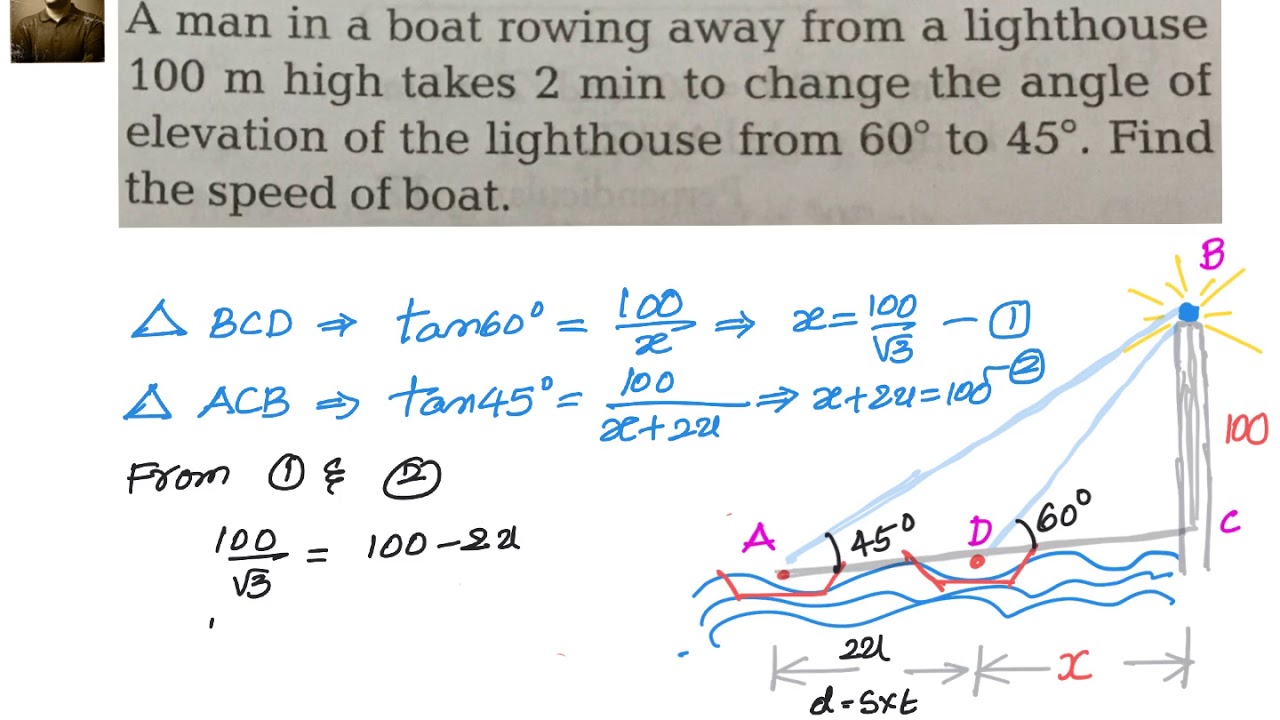 A man in a boat rowing away from a lighthouse
100 m high takes 2 min to change the angle of
elevation of the lighthouse from 60° to 45°. Find
the speed of boat.
△ BCD ⇒ tan60° = 100/x ⇒ x = 100/√3 — ①
△ ACB ⇒ tan45° = 100/x+2u ⇒ x+2u = 100 — ②
From ① & ②
100/√3 = 100 – 2u
B
100
C
A
45°
D
60°
2u
x
d = s×t